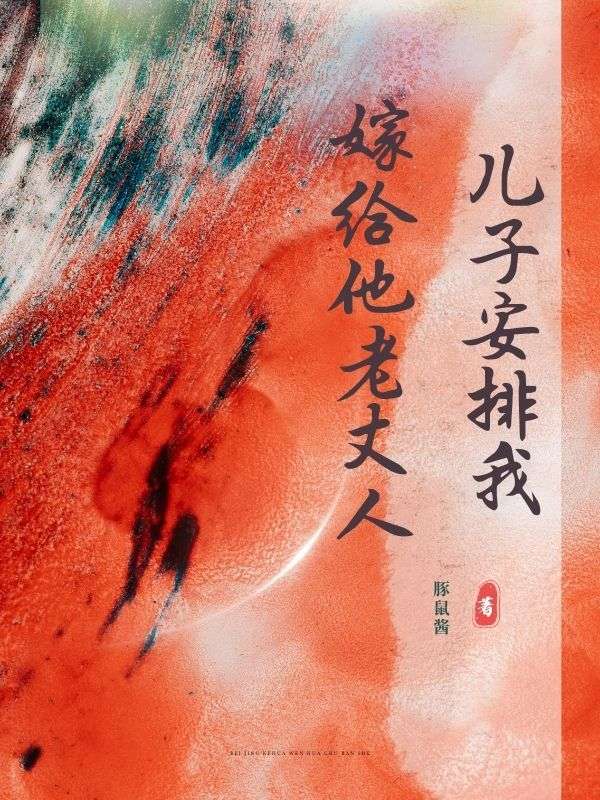 儿子安排我
嫁给他老丈人
豚鼠酱
著
BEI JING KEHUA WEN HUA CHU BAN SHE